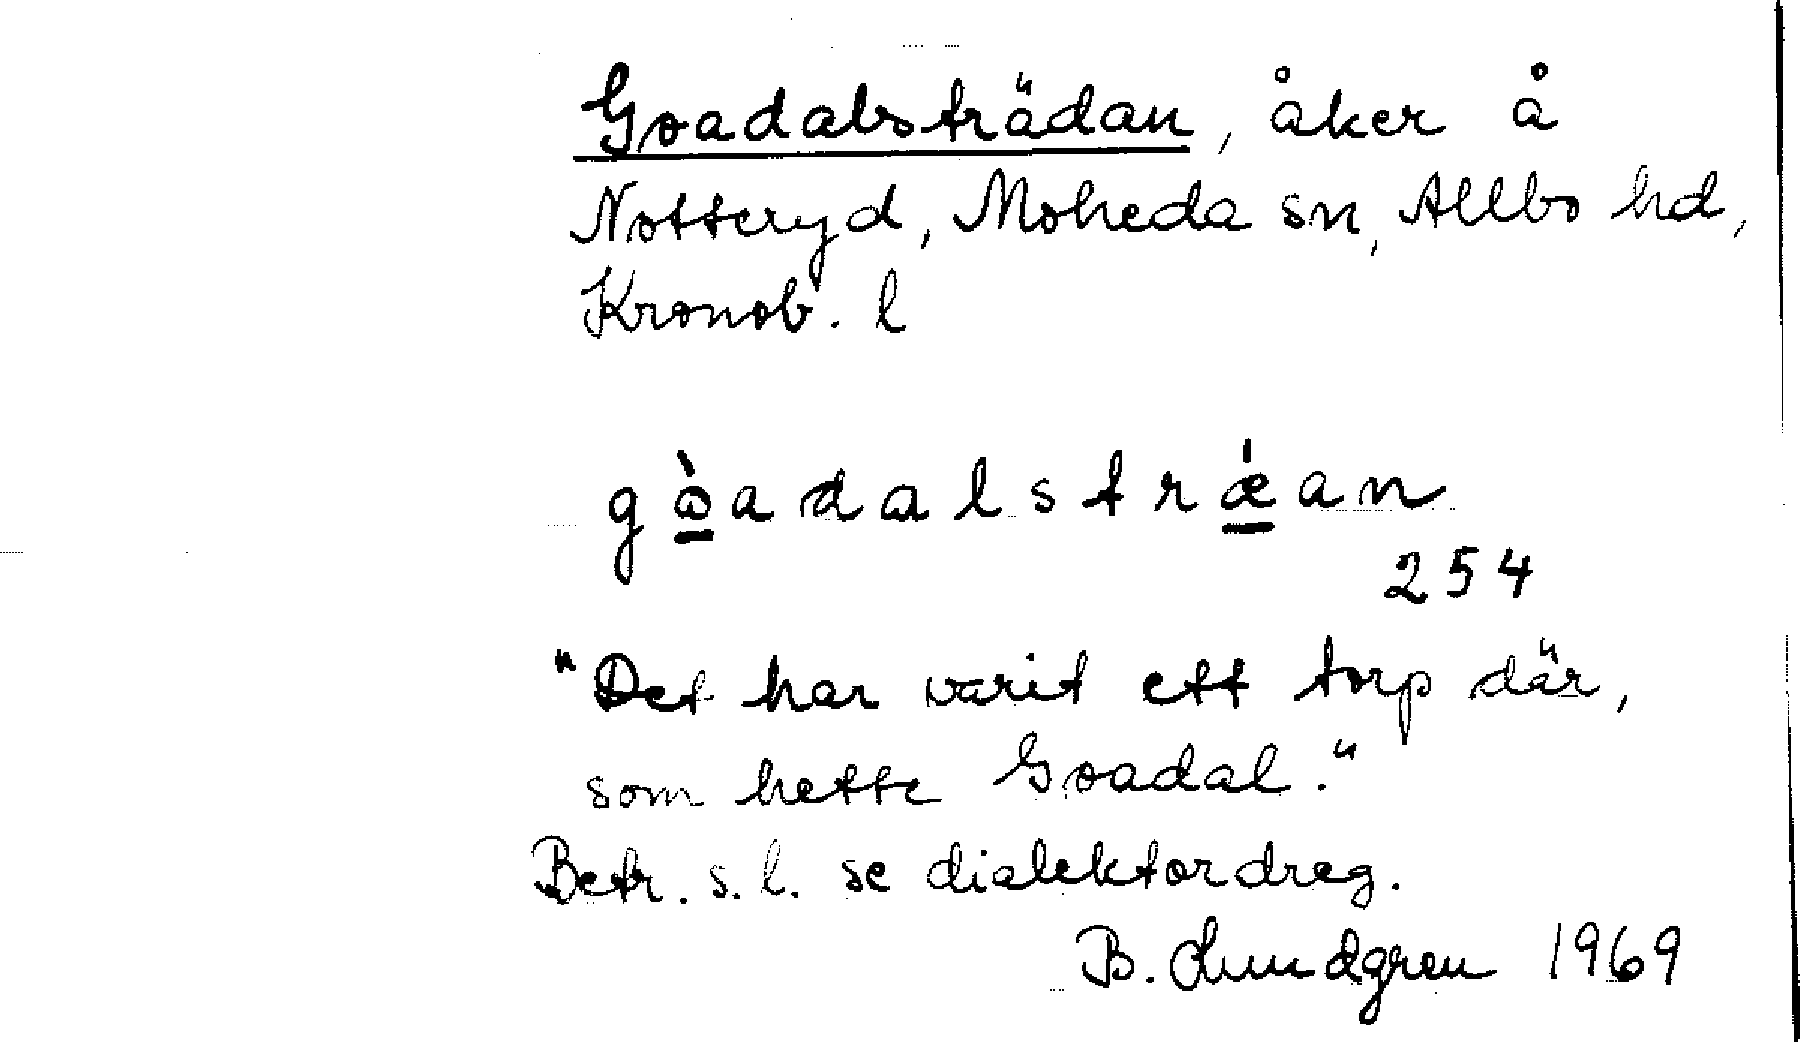 Goadalsträdan, åker å
Notteryd, Moheda sn, Allbo hd,
Kronob. l
gò̲adalstrǽ̲an
254
"Det har varit ett torp där,
som hette Goadal."
Betr. s.l. se dialektordreg.
B. Lundgren 1969